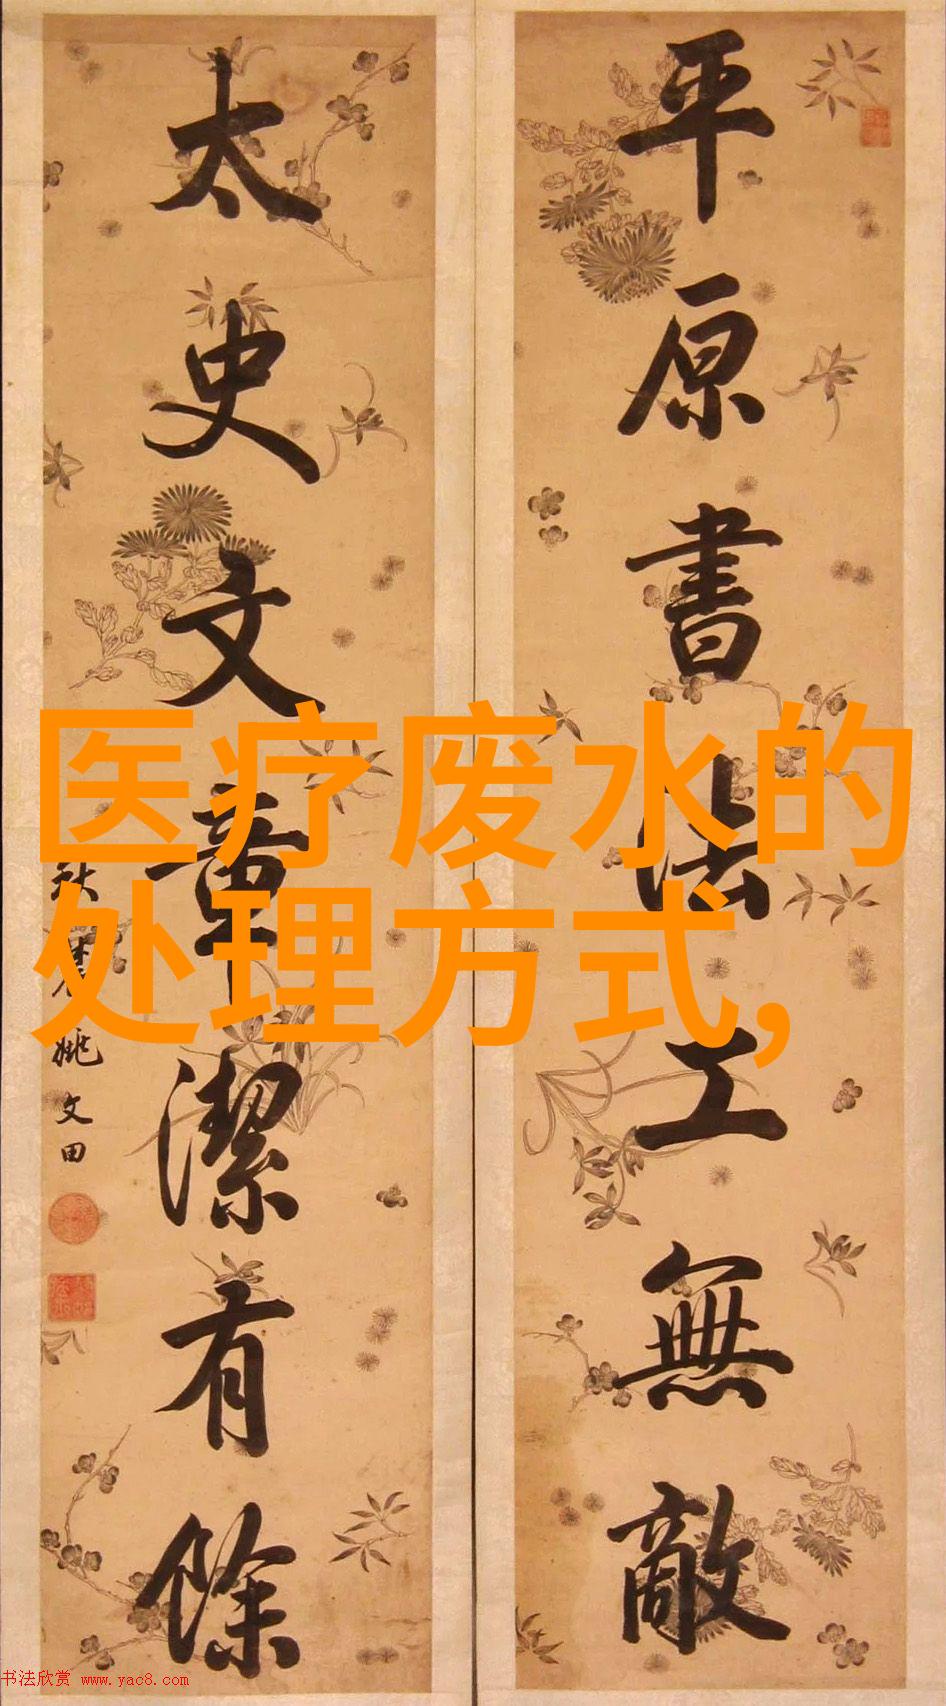 平原書法工無敵
太史文章潔有餘
秋農姚文田
医疗废水的
处理方式,
书法欣赏 www.yac8.com